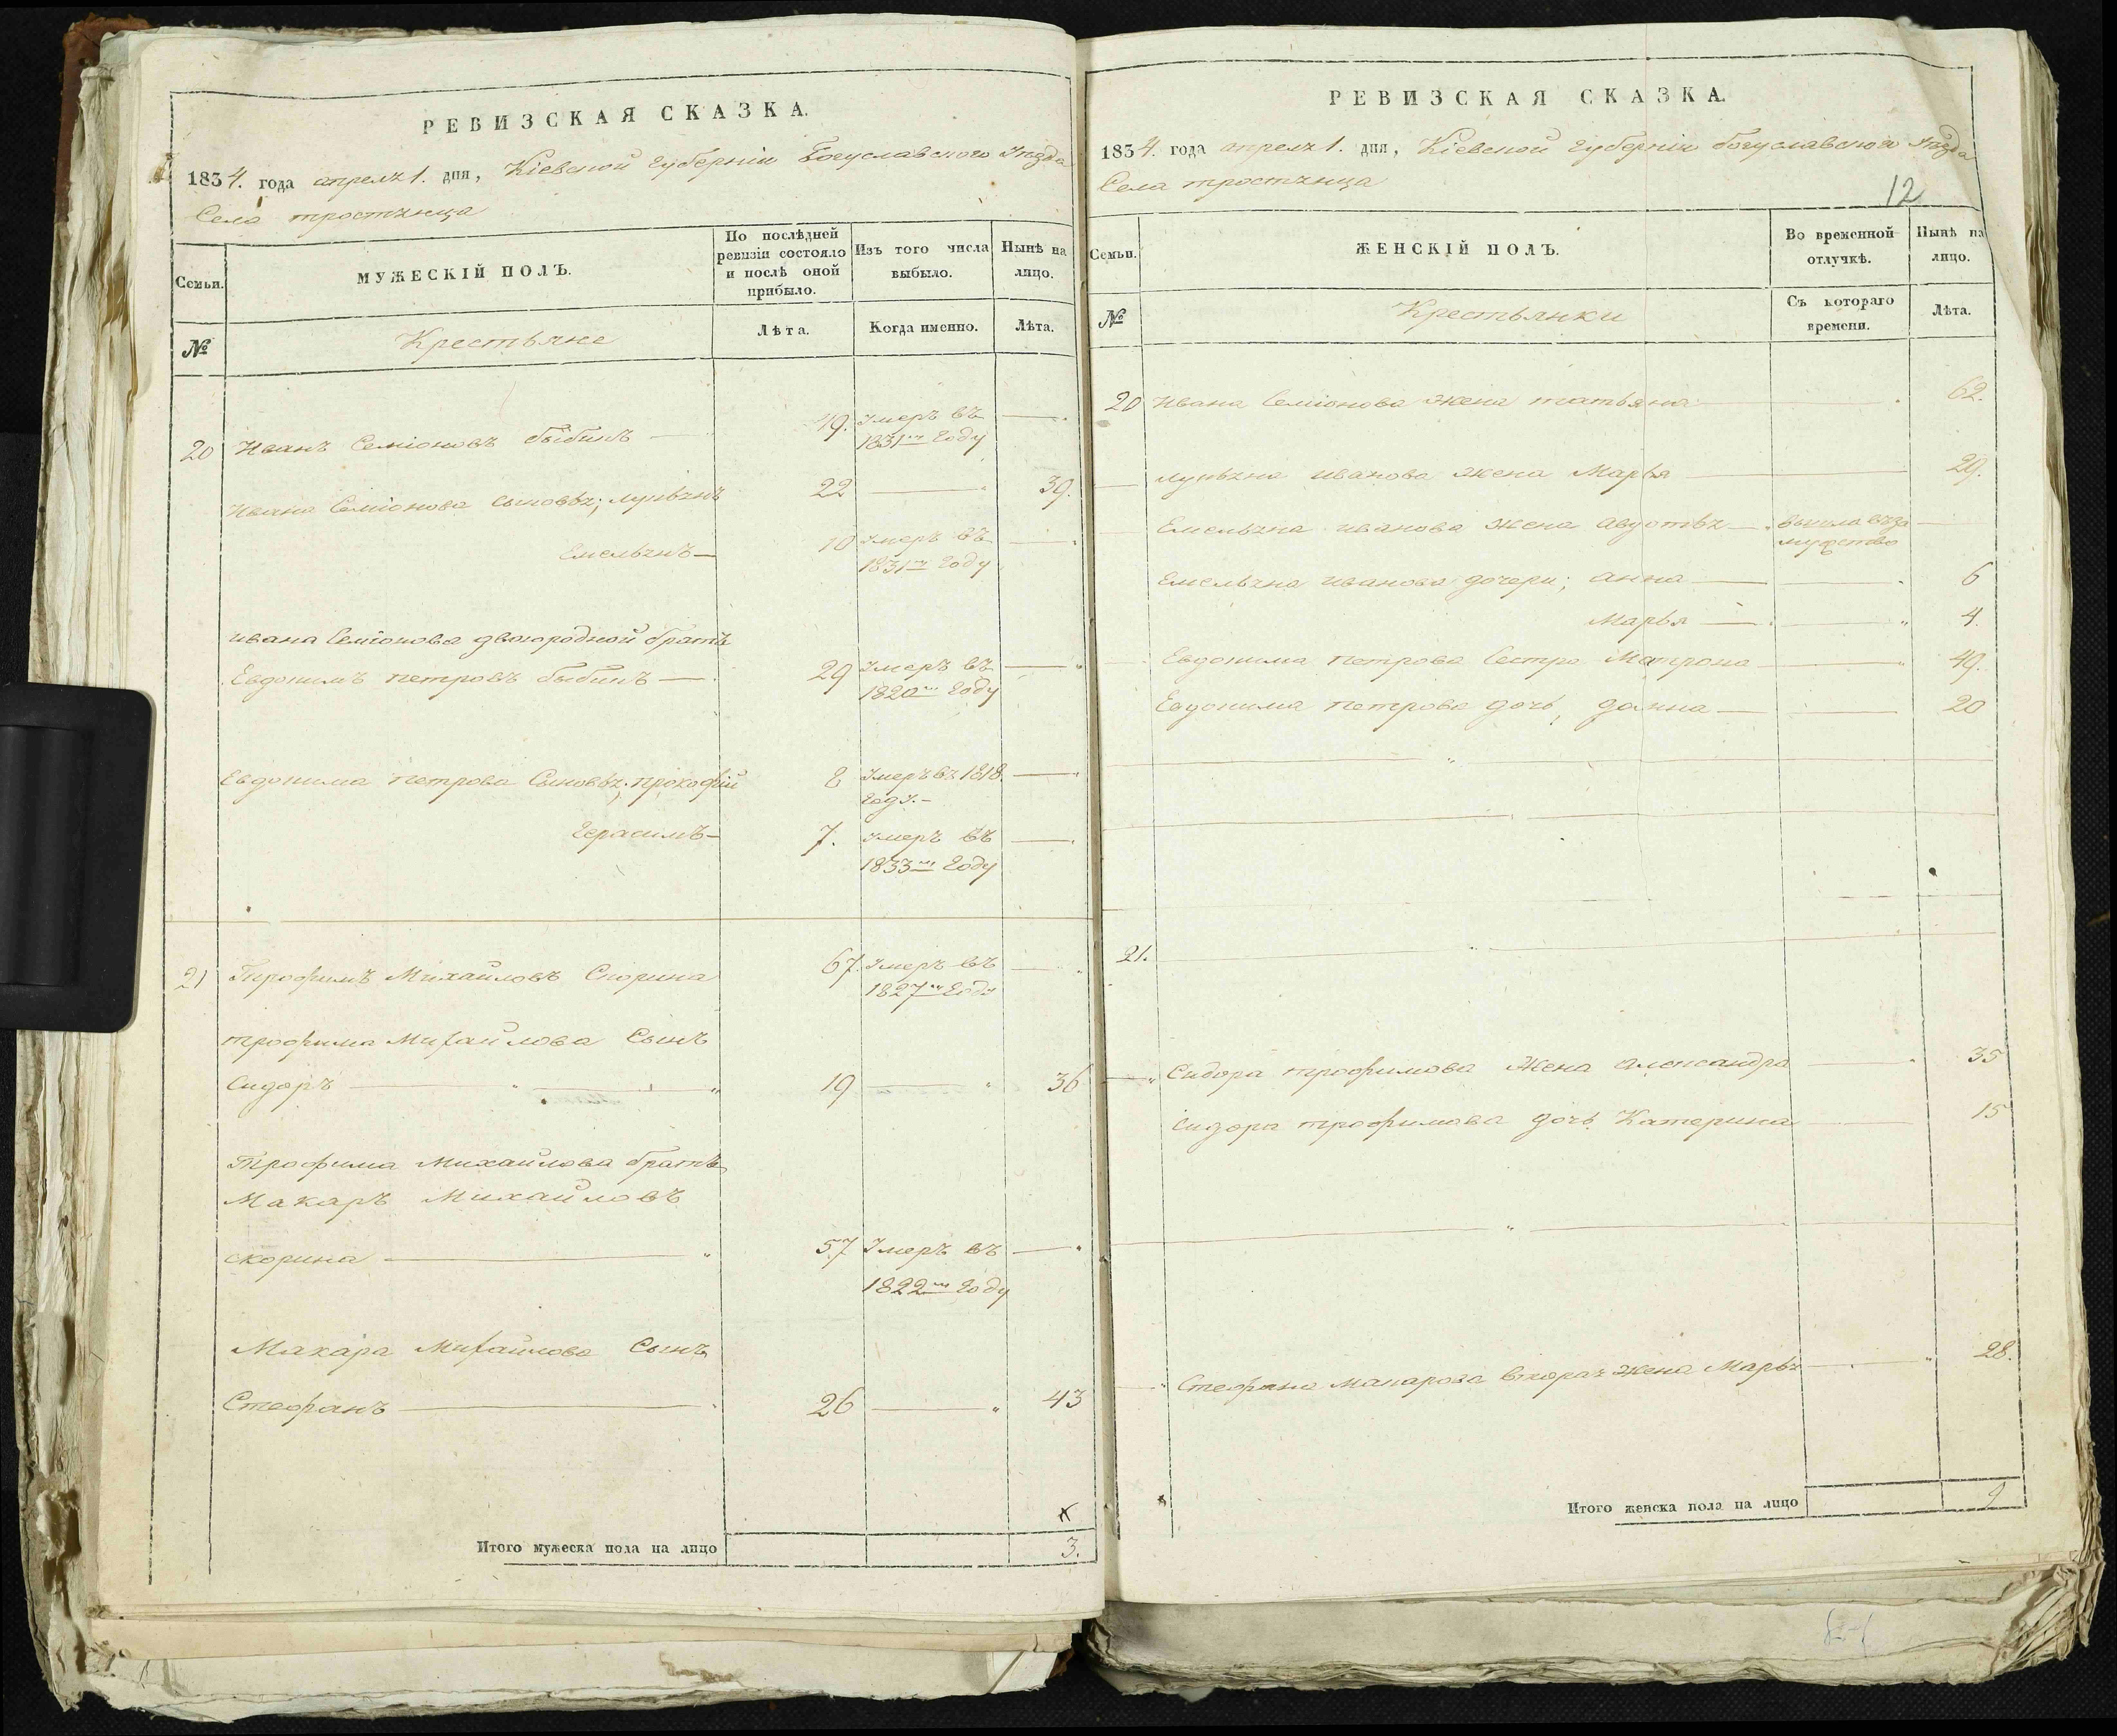 РЕВИЗСКАЯ СКАЗКА.
1834. года апреля 1. дня, Кіевской губерніи Богуславского Уѣзда
Села тростянца
Семьи.
МУЖЕСКІЙ ПОЛЪ.
По послѣдней ревизіи состояло и послѣ оной прибыло.
Изъ того числа выбыло.
Нынѣ на лицо.
№
Крестьяне
Лѣта.
Когда именно.
Лѣта.
20 Иванъ Семіоновъ 49. Умеръ въ
1831м году
Ивана Семіонова сыновья; лукьянъ 22 39.
Емельянъ 10 Умеръ въ
1831м году
ивана Семіонова двоюродной братъ
Евдокимъ петровъ 29 Умеръ въ
1820м году
Евдокима петрова Сыновья; прокофій 8 Умеръ въ 1818
году.
Герасимъ 7. Умеръ въ
1833м году
21 Трофимъ Михайловъ Скорина 67. Умеръ въ
1827м году
трофима Михайлова Сынъ
Сидоръ 19 36
Трофима Михайлова братъ
Макаръ Михайловъ
скорина 57 Умеръ въ
1822м году
Макара Михайлова Сынъ
Стефанъ 26 43
Итого мужеска пола на лицо 3.
РЕВИЗСКАЯ СКАЗКА.
1834. года апреля 1. дня, Кіевской губерніи богуславского Уѣзда
Села тростянца
12
Семьи.
ЖЕНСКІЙ ПОЛЪ.
Во временной отлучкѣ.
Нынѣ на лицо.
№
Крестьянки
Съ котораго времени.
Лѣта.
20 Ивана Семіонова жена татьяна 62.
лукьяна иванова жена Марья 29.
Емельяна иванова жена авдотья вышла въ за
мужство
Емельяна иванова дочери; анна 6
Марья 4.
Евдокима петрова Сестра Матрона 49.
Евдокима петрова дочь, домна 20
21.
Сидора трофимова Жена александра 35
Сидора трофимова дочь Катерина 15
Стефана макарова вторая жена Марья 28.
Итого женска пола на лицо 9